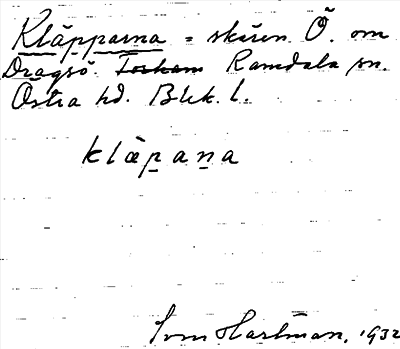 Kläpparna = skären Ö. om
Dragsö. Torham Ramdala sn.
Östra hd. Blek. l.
klæpaṉa
Sven Hartman, 1932